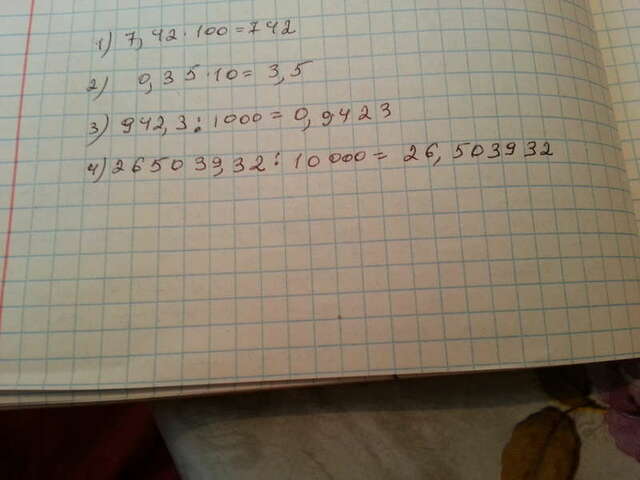 1) 7,42·100=742
2) 0,35·10=3,5
3) 942,3:1000=0,9423
4) 265039,32:10000=26,503932